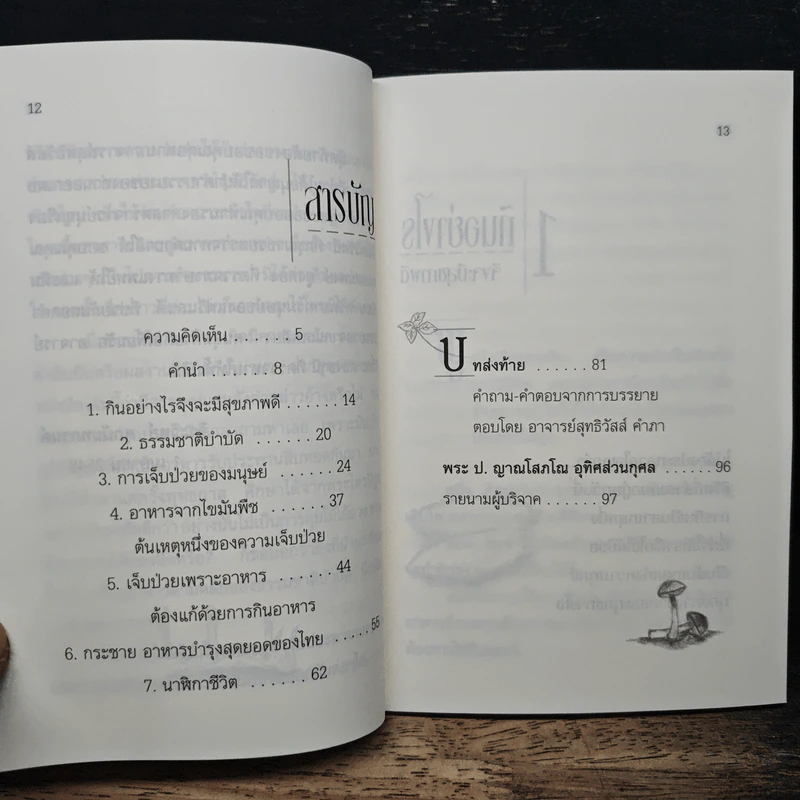 12
สารบัญ
ความคิดเห็น . . . . . . 5
คำนำ . . . . . . . 8
1. กินอย่างไรจึงจะมีสุขภาพดี . . . . . . 14
2. ธรรมชาติบำบัด . . . . . . 20
3. การเจ็บป่วยของมนุษย์ . . . . . . 24
4. อาหารจากไขมันพืช . . . . . . 37
ต้นเหตุหนึ่งของความเจ็บป่วย
5. เจ็บป่วยเพราะอาหาร . . . . . . 44
ต้องแก้ด้วยการกินอาหาร
6. กระชาย อาหารบำรุงสุดยอดของไทย . . . . . 55
7. นาฬิกาชีวิต . . . . . . 62
13
บทส่งท้าย . . . . . . 81
คำถาม-คำตอบจากการบรรยาย
ตอบโดย อาจารย์สุทธิวัสส์ คำภา
พระ ป. ญาณโสภโณ อุทิศส่วนกุศล . . . . . . . 96
รายนามผู้บริจาค . . . . . . . 97